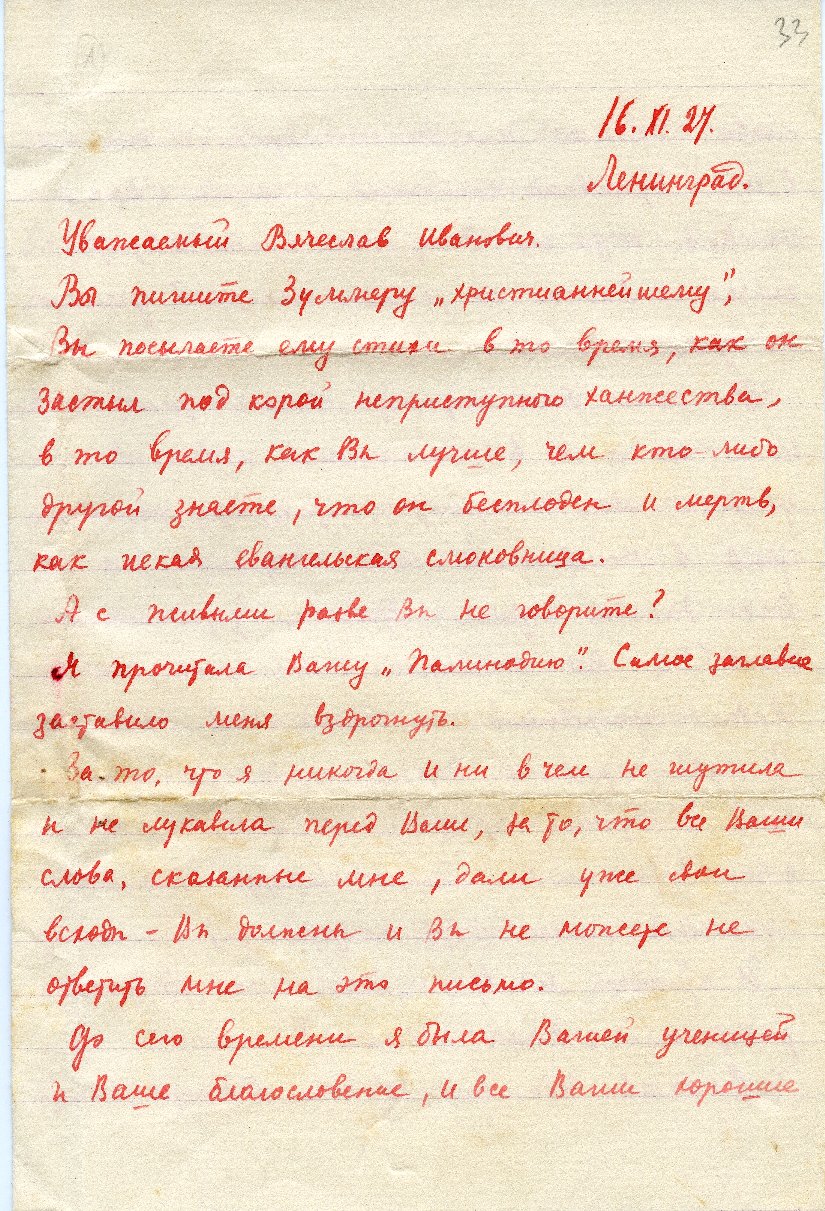 33
16. XI. 27.
Ленинград.
Уважаемый Вячеслав Иванович.
Вы пишите Зуммеру „христианнейшему",
Вы посылаете ему стихи в то время, как он
застыл под корой неприступного ханжества,
в то время, как Вы лучше, чем кто-либо
другой знаете, что он бесплоден и мертв,
как некая евангельская смоковница.
А с живыми разве Вы не говорите?
Я прочитала Вашу „Палинодию". Самое заглавие
заставило меня вздрогнуть.
За-то, что я никогда и ни в чем не шутила
и не лукавила перед Вами, за то, что все Ваши
слова, сказанные мне, дали уже свои
всходы – Вы должны и Вы не можете не
ответить мне на это письмо.
До сего времени я была Вашей ученицей
и Ваше благословение, и все Ваши хорошие